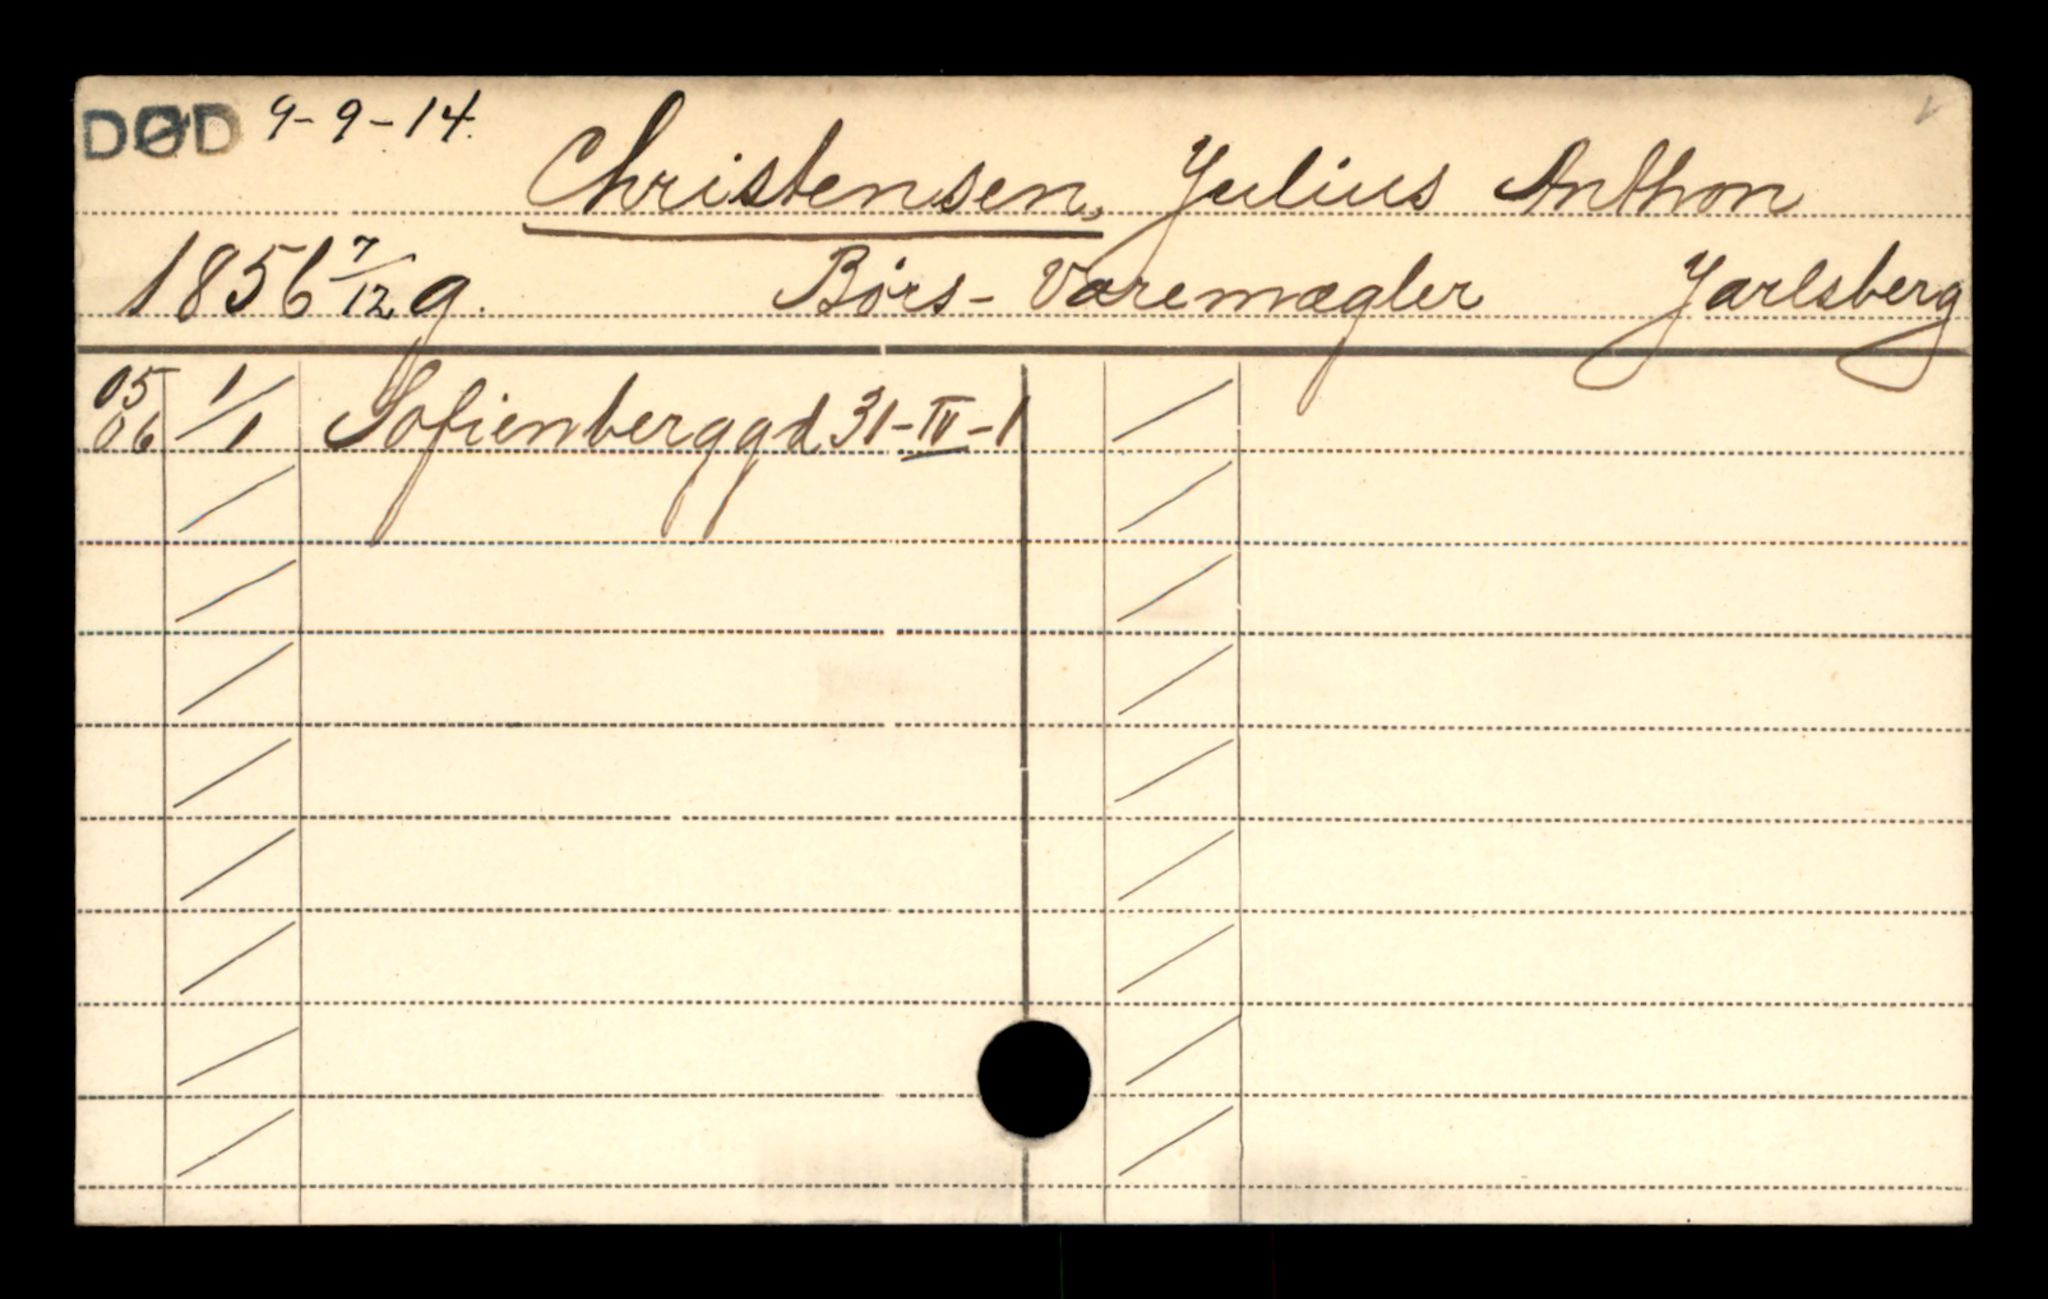 DØD 9-9-14.
Christensen, Julius Anthon
1856 7/12 g. Börs-Varemægler Jarlsberg
05 1/1 Sofienberggd 31-IV-1
06